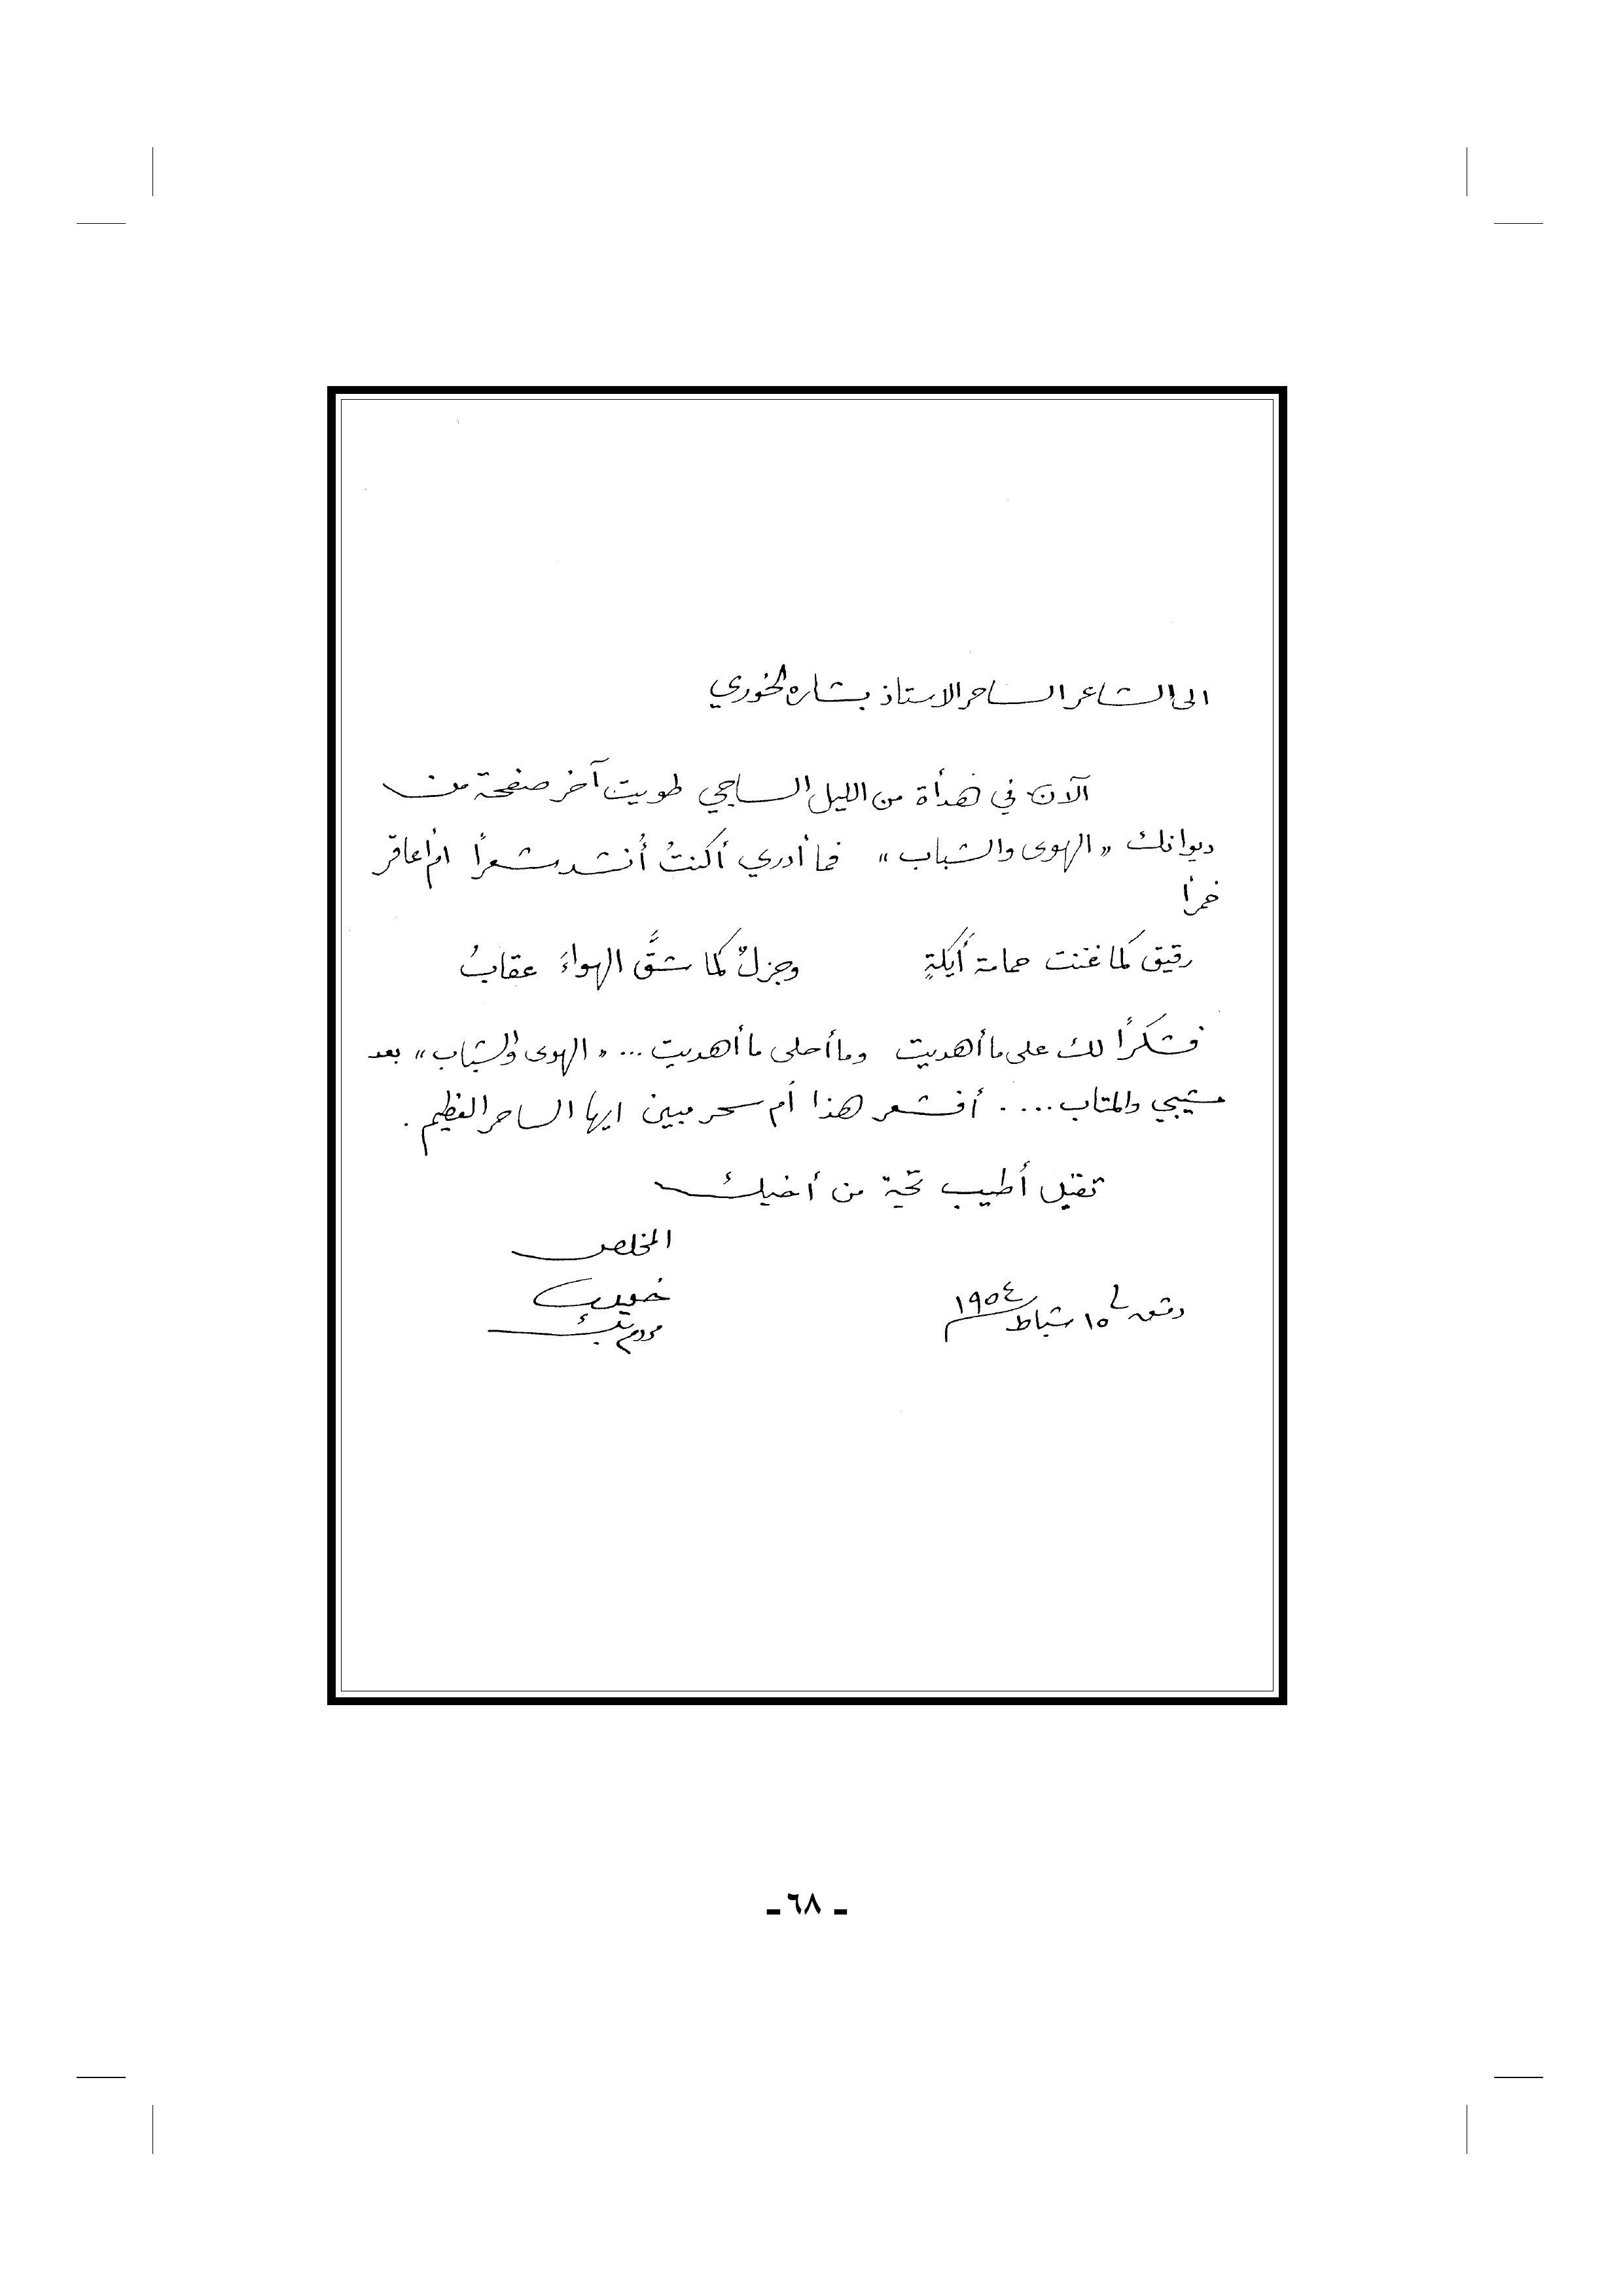 الى الشاعر الساحر الاستاذ بشاره الخوري
الآن في هدأة من الليل الساجي طويت آخر صفحة من
ديوانك «الهوى والشباب» فما أدري أكنتُ أُنشد شعراً ام أُعاقر
خمراً
رقيق كما غنت حمامة أَيكةٍ وجزلٌ كما شقَّ الهواءَ عقابُ
فشكراً لك على ما أهديت وما أحلى ما أهديت ... «الهوى والشباب» بعد
مشيبي والمتاب .... أفشعر هذا أم سحر مبين ايها الساحر العظيم .
تقبل أطيب تحية من أخيك
المخلص
دمشق في ١٥ شباط ١٩٥٤
مردم بك
ـ ٦٨ ـ